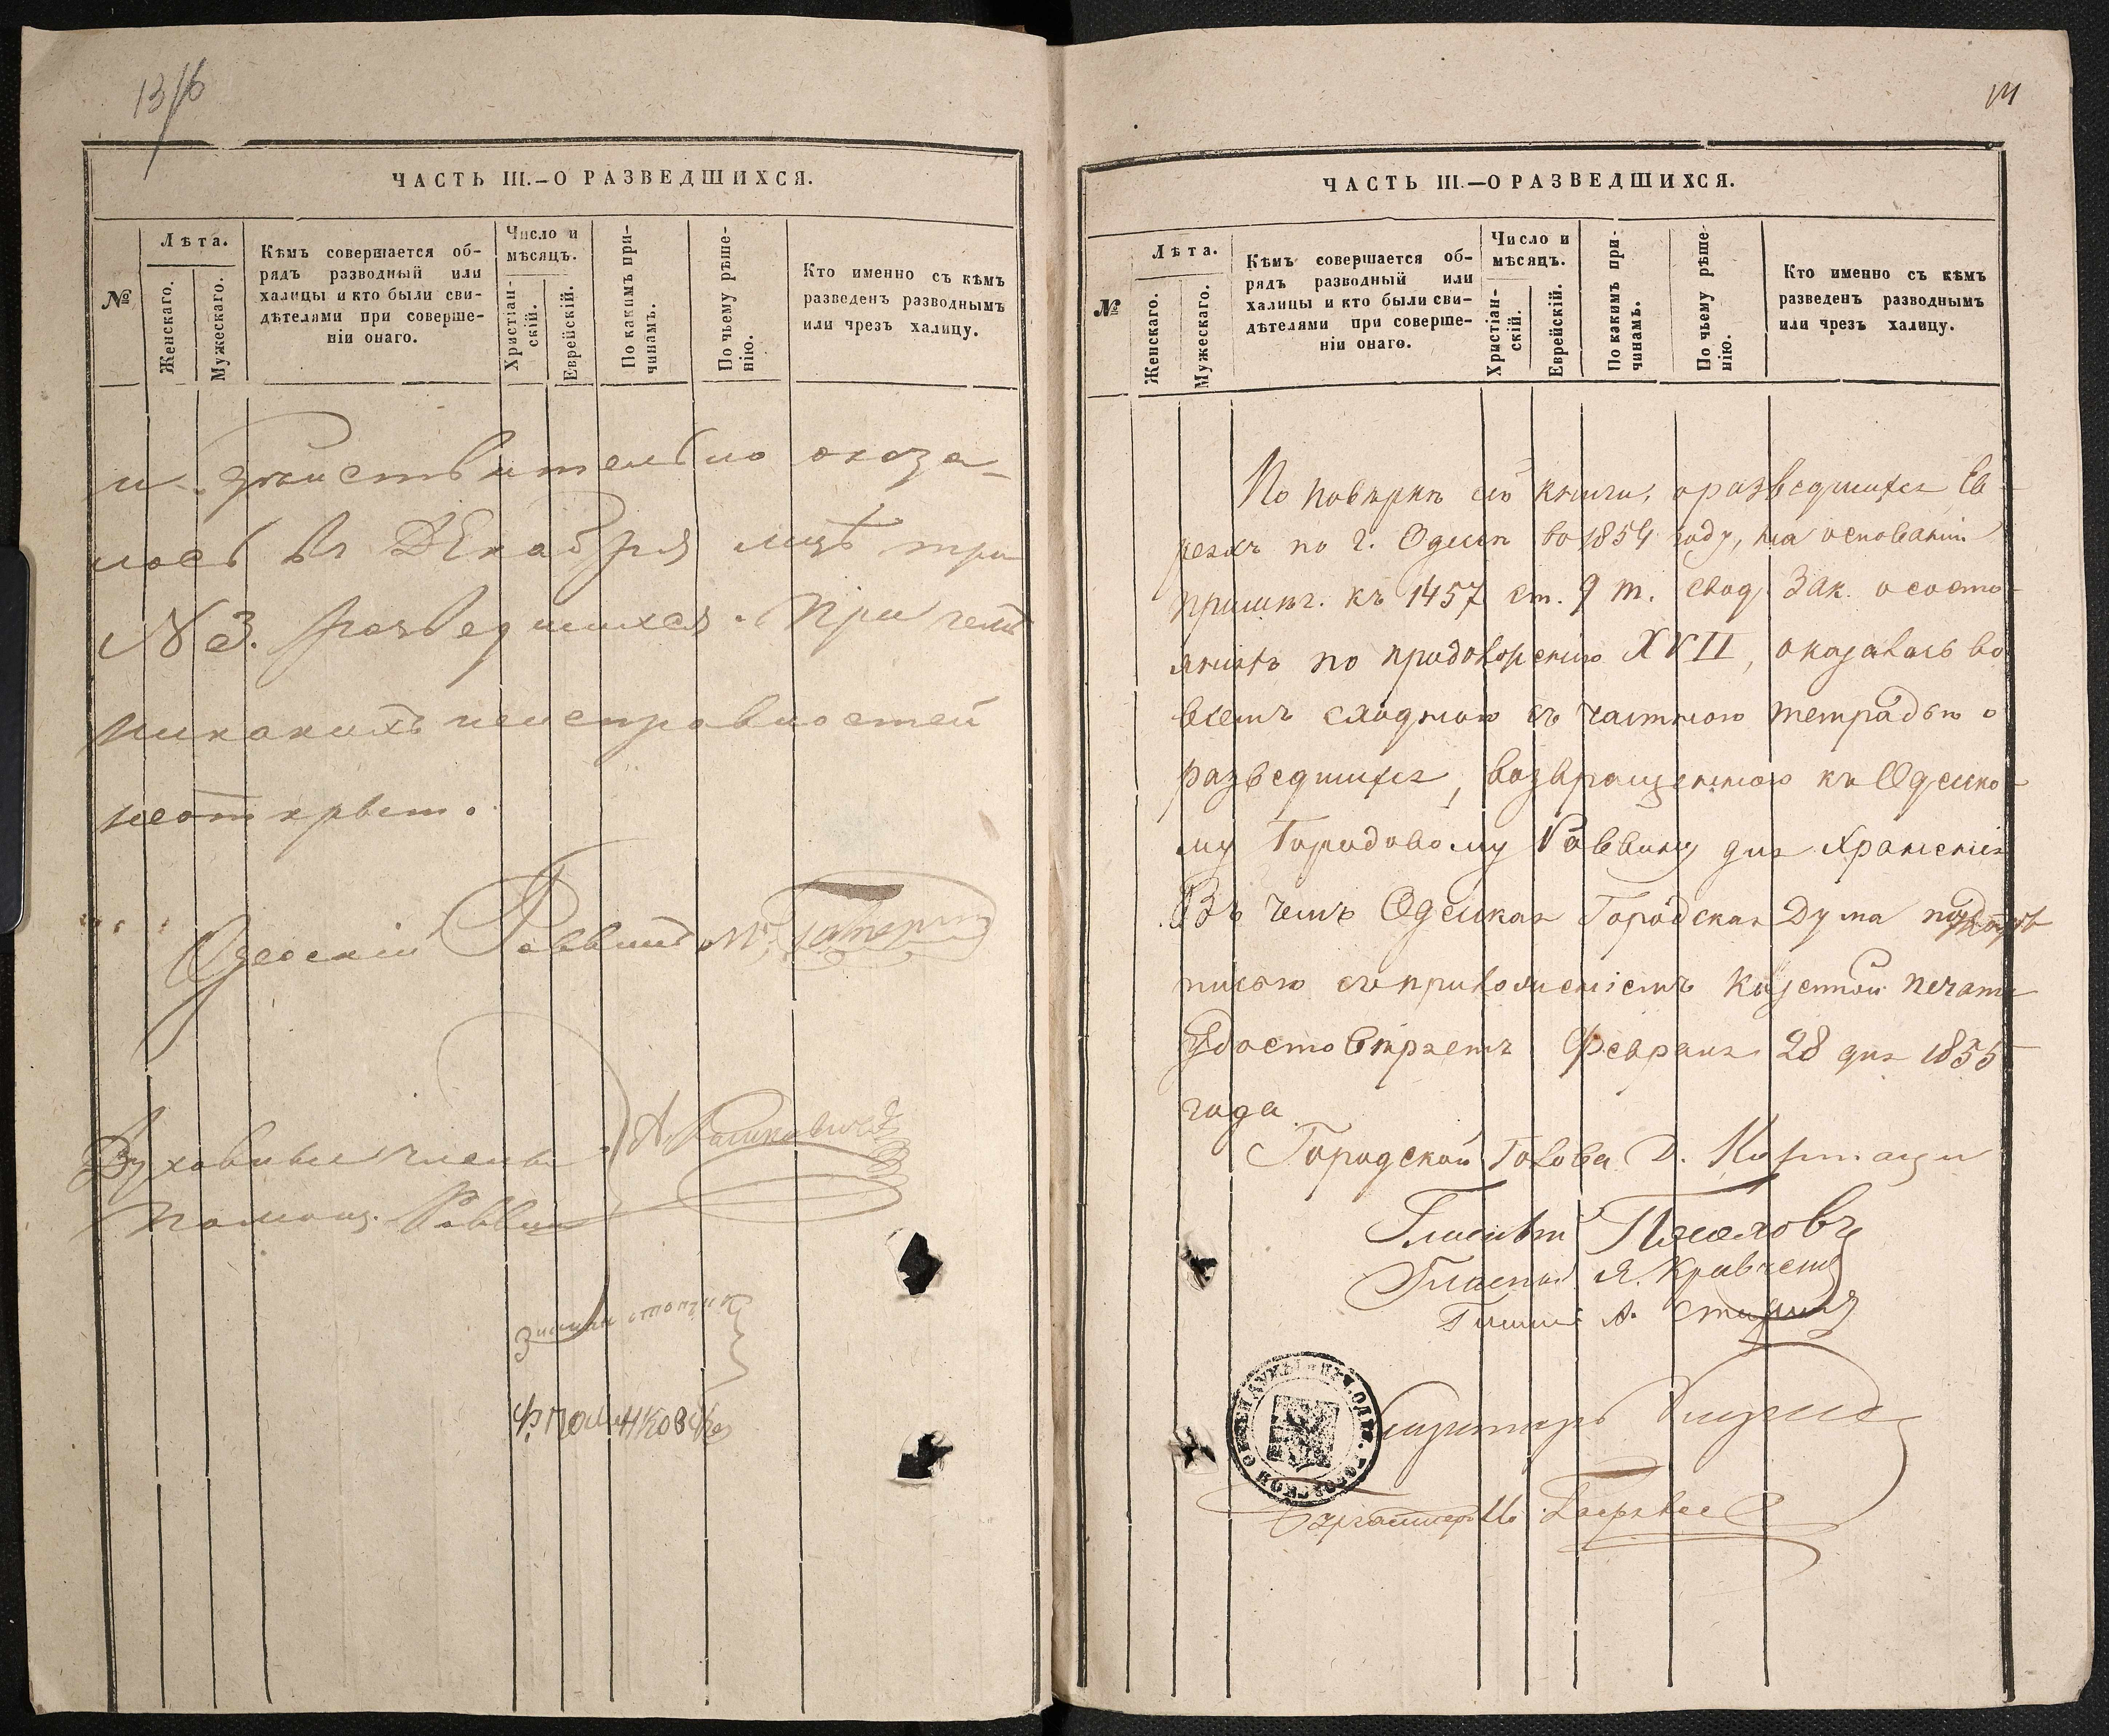 13/6
ЧАСТЬ III.—О РАЗВЕДШИХСЯ.
№
Лѣта.
Женскаго.
Мужескаго.
Кѣмъ совершается об-
рядъ разводный или
халицы и кто были сви-
дѣтелями при соверше-
ніи онаго.
Число и
мѣсяцъ.
Христіан-
скій.
Еврейскій.
По какимъ при-
чинамъ.
По чьему рѣше-
нію.
Кто именно съ кѣмъ
разведенъ разводнымъ
или чрезъ халицу.
и действительно оказа-
лось въ Декабря мцѣ три
№ 3. разведшихся. При чемъ
никакихъ неисправностей
неоткрыто.
Одесскій Раввинъ М.
Духовные члены
Помощ. Раввин
14
ЧАСТЬ III.—О РАЗВЕДШИХСЯ.
№
Лѣта.
Женскаго.
Мужескаго.
Кѣмъ совершается об-
рядъ разводный или
халицы и кто были сви-
дѣтелями при соверше-
ніи онаго.
Число и
мѣсяцъ.
Христіан-
скій.
Еврейскій.
По какимъ при-
чинамъ.
По чьему рѣше-
нію.
Кто именно съ кѣмъ
разведенъ разводнымъ
или чрезъ халицу.
По повѣркѣ сей книги, о разведшихся Ев-
реяхъ по г. Одессѣ во 1854 году, на основаніи
примѣч. къ 1457 ст. 9 т. свод. Зак. о состо-
яніяхъ по продолженію XVII, оказалась во
всемъ сходною съ частною тетрадью о
разведшихся, возвращенною къ Одесско-
му Городовому Раввину для храненія
Въ чемъ Одесская Городская Дума под
писью съ приложеніемъ казенной печати
удостовѣряетъ Февраля 28 дня 1855
года
Городской Голова Д.
Гласный
Гласный Я. Кравченко
Гласный А.
Секретарь
Бухгалтеръ